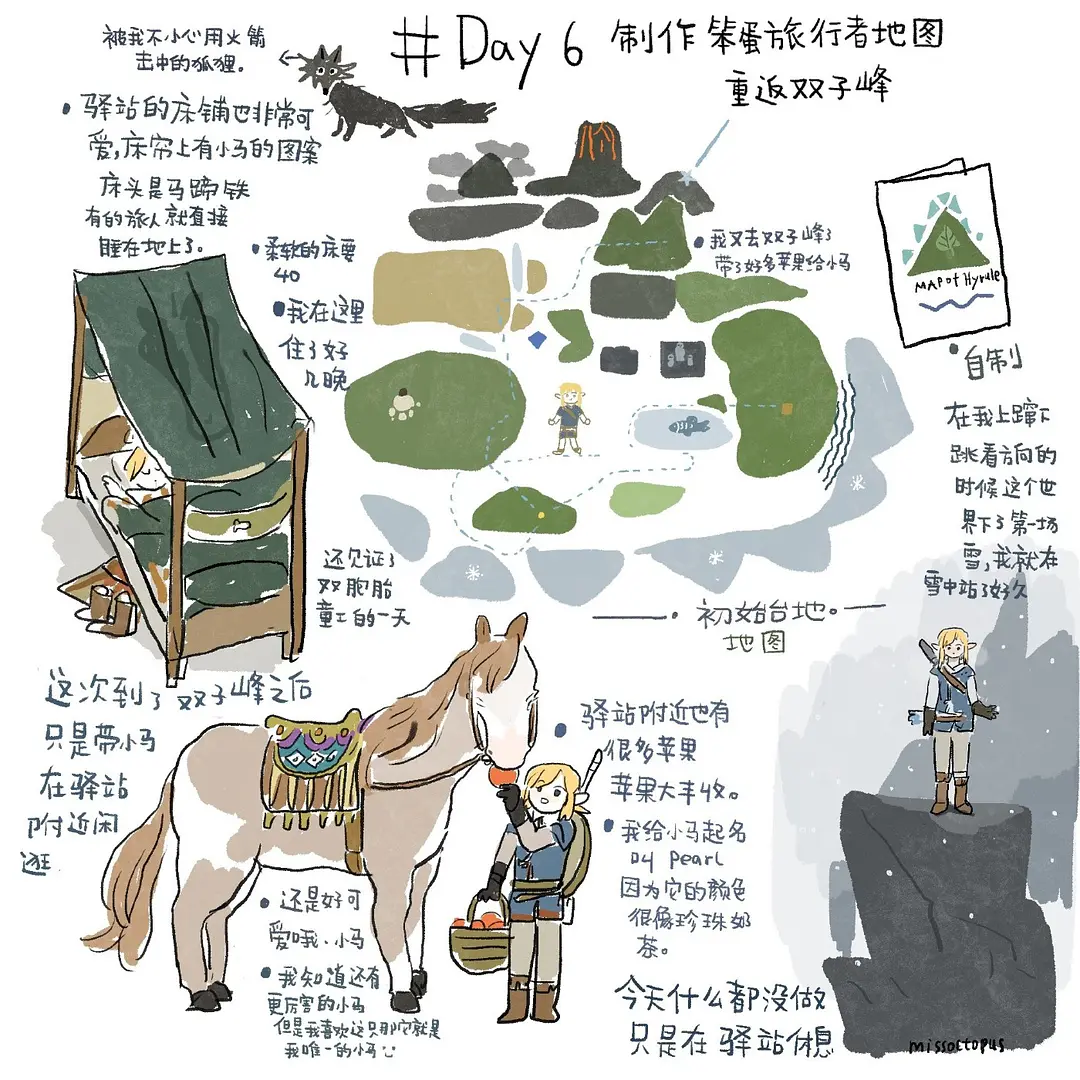 #Day 6 制作笨蛋旅行者地图
重返双子峰
被我不小心用火箭
击中的狐狸。
• 驿站的床铺也非常可
爱,床帘上有小马的图案
床头是马蹄铁
有的旅人就直接
睡在地上了。
• 柔软的床要
40
• 我在这里
住了好
几晚
• 我又去双子峰了
带了好多苹果给小马
MAP of Hyrule
• 自制
在我上蹿下
跳看方向的
时候这个世
界下了第一场
雪,我就在
雪中站了好久
还见证了
双胞胎
童工的一天
——• 初始台地。——
地图
这次到了双子峰之后
只是带小马
在驿站
附近闲
逛
• 驿站附近也有
很多苹果
苹果大丰收。
• 我给小马起名
叫 Pearl
因为它的颜色
很像珍珠奶
茶。
• 还是好可
爱哦、小马
• 我知道还有
更厉害的小马
但是我喜欢这只那它就是
我唯一的小马
今天什么都没做
只是在驿站休息
missoctopus